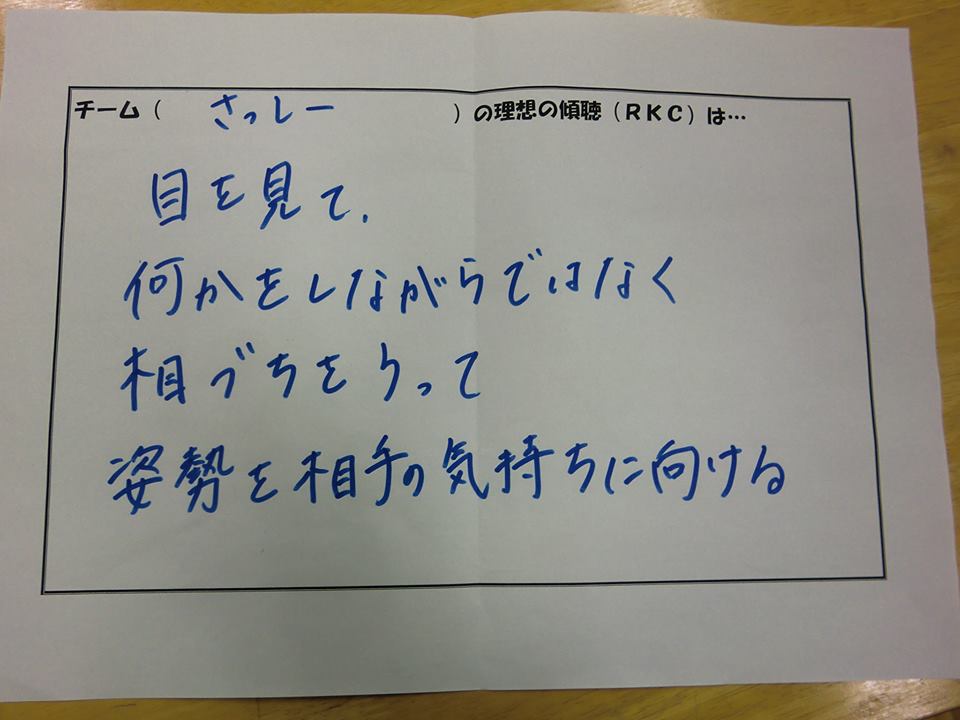 チーム（ さっしー ）の理想の傾聴（ＲＫＣ）は…
目を見て、
何かをしながらではなく
相づちをうって
姿勢を相手の気持ちに向ける